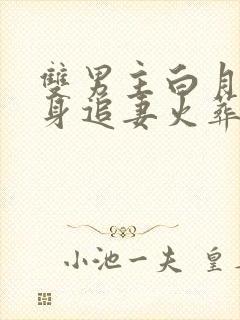 雙男主白月
身追妻火葬
小池一夫 皇